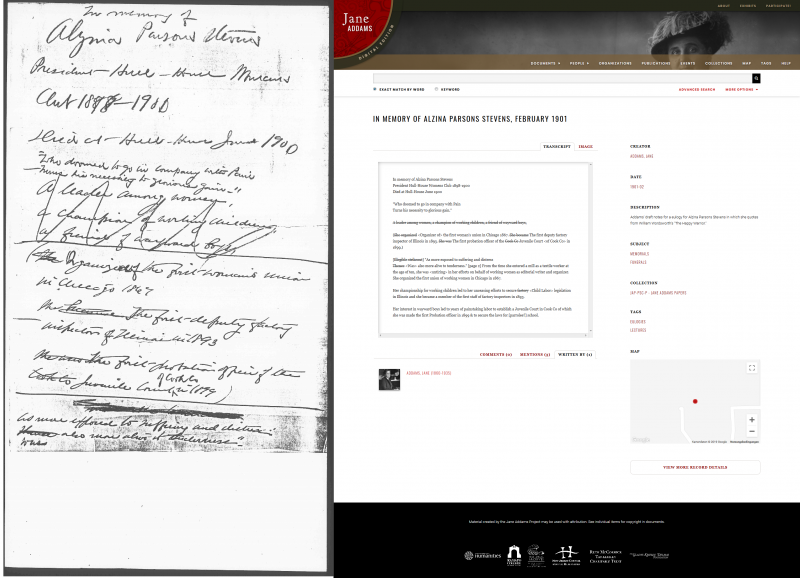 In memory of
Alzina Parsons Stevens
President - Hull - House Womans
Club 1898 - 1900
Died at - Hull - House June 1900
"Who doomed to go in company with Pain
Turns his necessity to glorious gain -"
A leader among women,
a champion of working children,
a friend of wayward boys
Organizer of the first woman's union
in Chicago 1867
The first deputy factory
inspector of Illinois in 1893
She was the first probation officer of the
Cook Co Juvenile Court of Cook Co in (1899)
as more exposed to suffering and distress
also more alive to tenderness"
Jane
ADDAMS
DIGITAL EDITION
ABOUT EXHIBITS PARTICIPATE!
DOCUMENTS PEOPLE ORGANIZATIONS PUBLICATIONS EVENTS COLLECTIONS MAP TAGS HELP
EXACT MATCH BY WORD KEYWORD ADVANCED SEARCH MORE OPTIONS
IN MEMORY OF ALZINA PARSONS STEVENS, FEBRUARY 1901
TRANSCRIPT IMAGE
In memory of Alzina Parsons Stevens
President Hull-House Womans Club 1898-1900
Died at Hull-House June 1900
"Who doomed to go in company with Pain
Turns his necessity to glorious gain."
A leader among women, a champion of working children, a friend of wayward boys,
(She organized) <Organizer of> the first woman's union in Chicago 1867. She became The first deputy factory
inspector of Illinois in 1893. She was The first probation officer of the Cook Co Juvenile Court <of Cook Co> in
1899.)
[illegible sentence] "As more exposed to suffering and distress
Thence <Was> also more alive to tenderness." [page 2] From the time she entered a mill as a textile worker at
the age of ten, she was <untiring> in her efforts on behalf of working women as editorial writer and organizer.
She organized the first union of working women in Chicago in 1867.
Her championship for working children led to her unceasing efforts to secure factory <Child Labor> legislation
in Illinois and she became a member of the first staff of factory inspectors in 1893.
Her interest in wayward boys led to years of painstaking labor to establish a Juvenile Court in Cook Co of which
she was made the first Probation officer in 1899 & to secure the love for [parental] school.
COMMENTS (0) MENTIONS (5) WRITTEN BY (1)
ADDAMS, JANE (1860-1935)
CREATOR
ADDAMS, JANE
DATE
1901-02
DESCRIPTION
Addams' draft notes for a eulogy for Alzina Parsons Stevens in which she quotes
from William Wordsworth's "The Happy Warrior."
SUBJECT
MEMORIALS
FUNERALS
COLLECTION
JAP MSS.P - JANE ADDAMS PAPERS
TAGS
EULOGIES
LECTURES
MAP
Google
VIEW MORE RECORD DETAILS
Material created by the Jane Addams Project may be used with attribution. See individual items for copyright in documents.
Humanities
RAMAPO
COLLEGE
RUTH MCCORMICK
TANKERSLEY
CHARITABLE TRUST